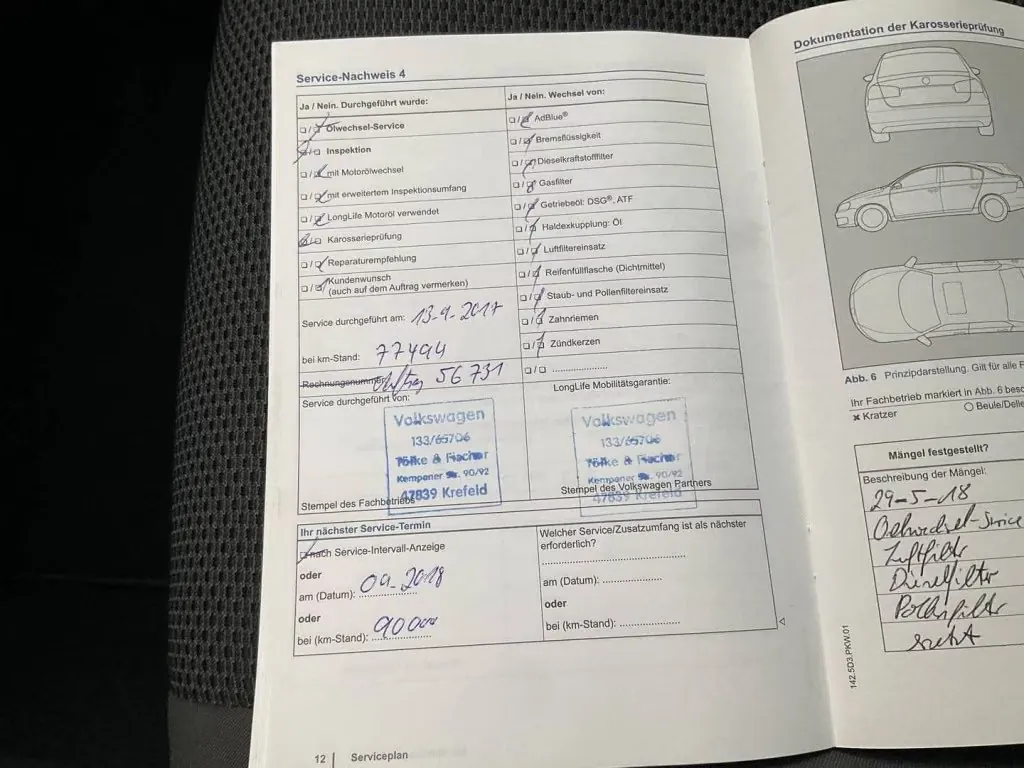 Service-Nachweis 4
Ja / Nein. Durchgeführt wurde:
Ölwechsel-Service
Inspektion
mit Motorölwechsel
mit erweitertem Inspektionsumfang
LongLife Motoröl verwendet
Karosserieprüfung
Reparaturempfehlung
Kundenwunsch
(auch auf dem Auftrag vermerken)
Service durchgeführt am: 13-9-2017
bei km-Stand: 77494
Rechnungsnummer 56731
Service durchgeführt von:
Volkswagen
133/65706
Tölke & Fischer
Kempener Str. 90/92
47839 Krefeld
Stempel des Fachbetriebs
Ja / Nein. Wechsel von:
AdBlue®
Bremsflüssigkeit
Dieselkraftstofffilter
Gasfilter
Getriebeöl: DSG®, ATF
Haldexkupplung: Öl
Luftfiltereinsatz
Reifenfüllflasche (Dichtmittel)
Staub- und Pollenfiltereinsatz
Zahnriemen
Zündkerzen
LongLife Mobilitätsgarantie:
Volkswagen
133/65706
Tölke & Fischer
Kempener Str. 90/92
47839 Krefeld
Stempel des Volkswagen Partners
Ihr nächster Service-Termin
nach Service-Intervall-Anzeige
oder
am (Datum): 09-2018
oder
bei (km-Stand): 90000
Welcher Service/Zusatzumfang ist als nächster
erforderlich?
am (Datum):
oder
bei (km-Stand):
12 | Serviceplan
Dokumentation der Karosserieprüfung
Abb. 6 Prinzipdarstellung. Gilt für alle
Ihr Fachbetrieb markiert in Abb. 6
Kratzer
Beule/Delle
Mängel festgestellt?
Beschreibung der Mängel:
29-5-18
Oelwechsel-Service
Luftfilter
Dieselfilter
Pollenfilter
142.5D3.PKW.01